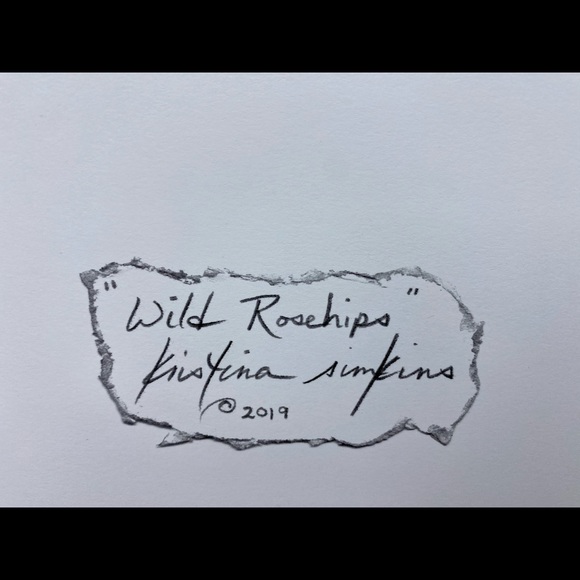 "Wild Rosehips"
Kristina Simkins
© 2019